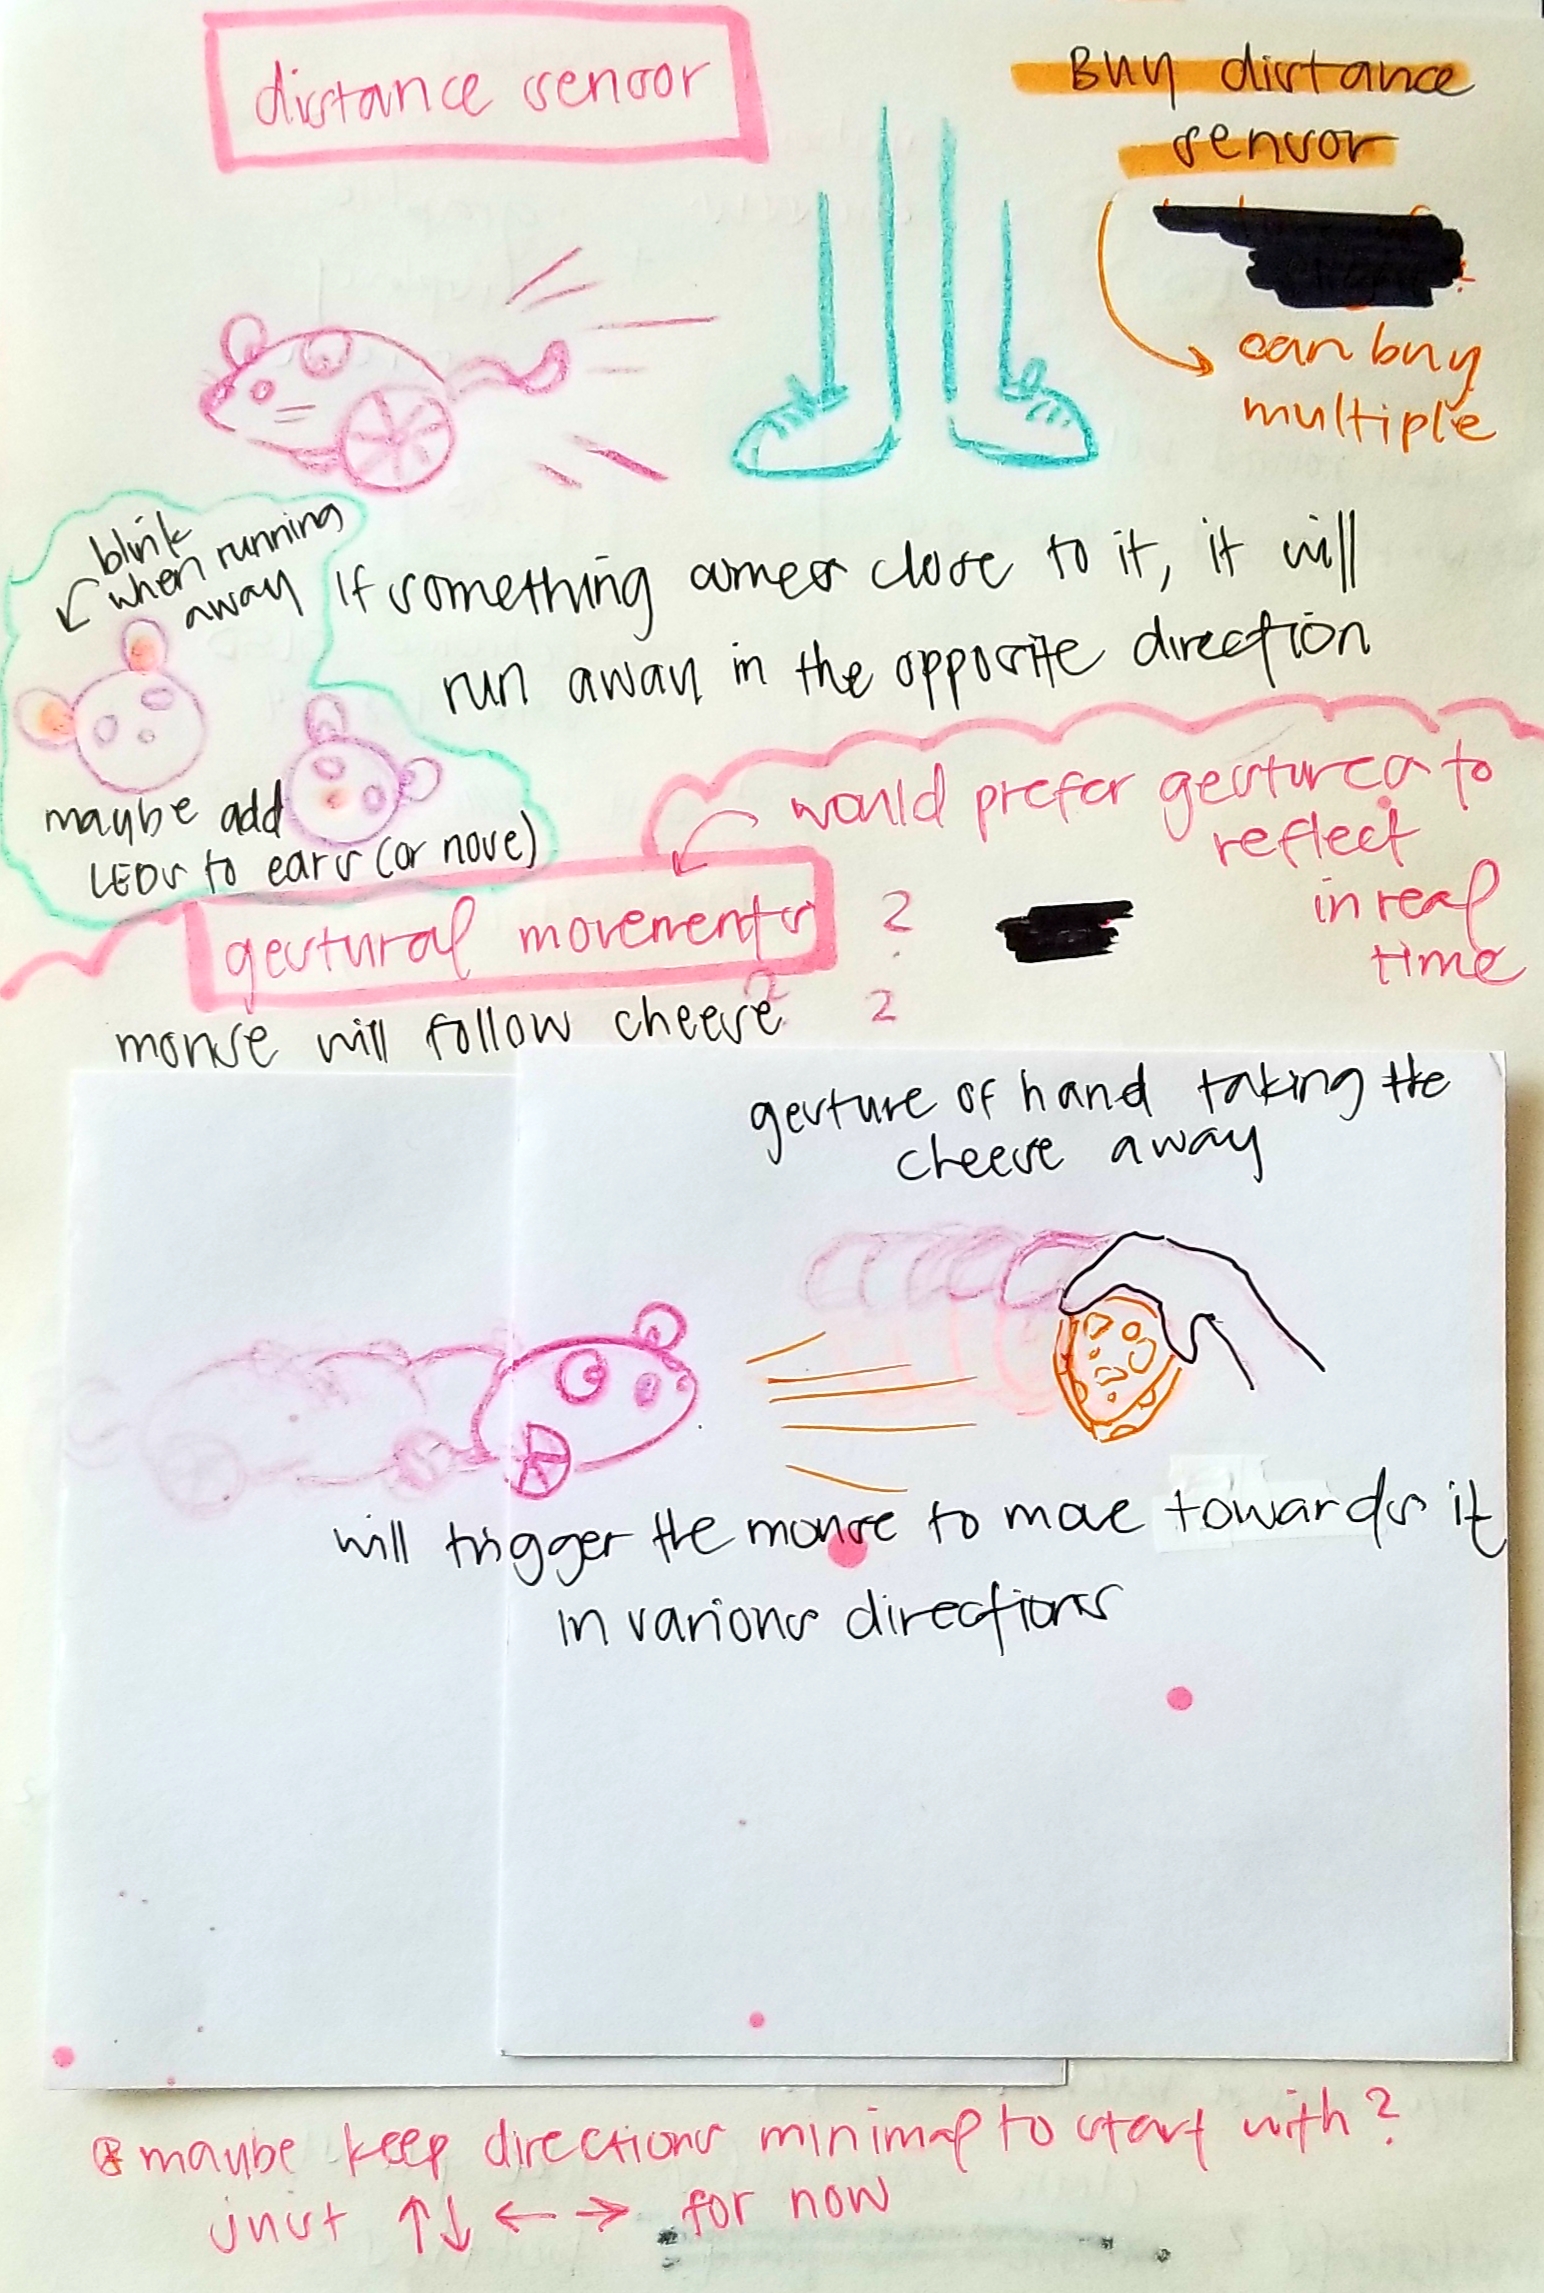 distance sensor
Buy distance
sensor
can buy
multiple
blink
when running
away
If something comes close to it, it will
run away in the opposite direction
maybe add
LEDs to ears (or nose)
would prefer gestures to
reflect
in real
time
gestural movements ?
?
mouse will follow cheese
gesture of hand taking the
cheese away
will trigger the mouse to move towards it
in various directions
maybe keep directions minimal to start with?
just ↑↓ ← → for now